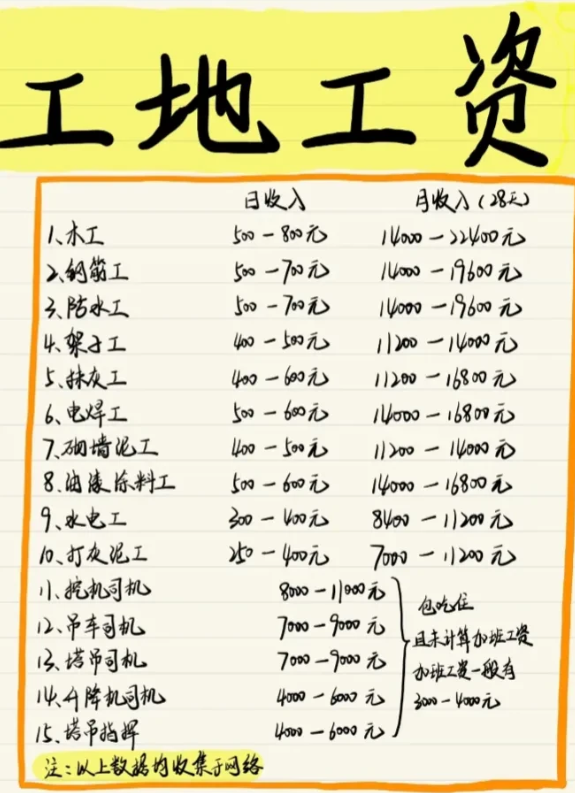 工地工资
日收入 月收入（28天）
1、木工 500－800元 14000－22400元
2、钢筋工 500－700元 14000－19600元
3、防水工 500－700元 14000－19600元
4、架子工 400－500元 11200－14000元
5、抹灰工 400－600元 11200－16800元
6、电焊工 500－600元 14000－16800元
7、砌墙泥工 400－500元 11200－14000元
8、油漆涂料工 500－600元 14000－16800元
9、水电工 300－400元 8400－11200元
10、打灰泥工 250－400元 7000－11200元
11、挖机司机 8000－11000元
12、吊车司机 7000－9000元
13、塔吊司机 7000－9000元
14、升降机司机 4000－6000元
15、塔吊指挥 4000－6000元
包吃住
且未计算加班工资
加班工资一般有
3000－4000元
注：以上数据均收集于网络